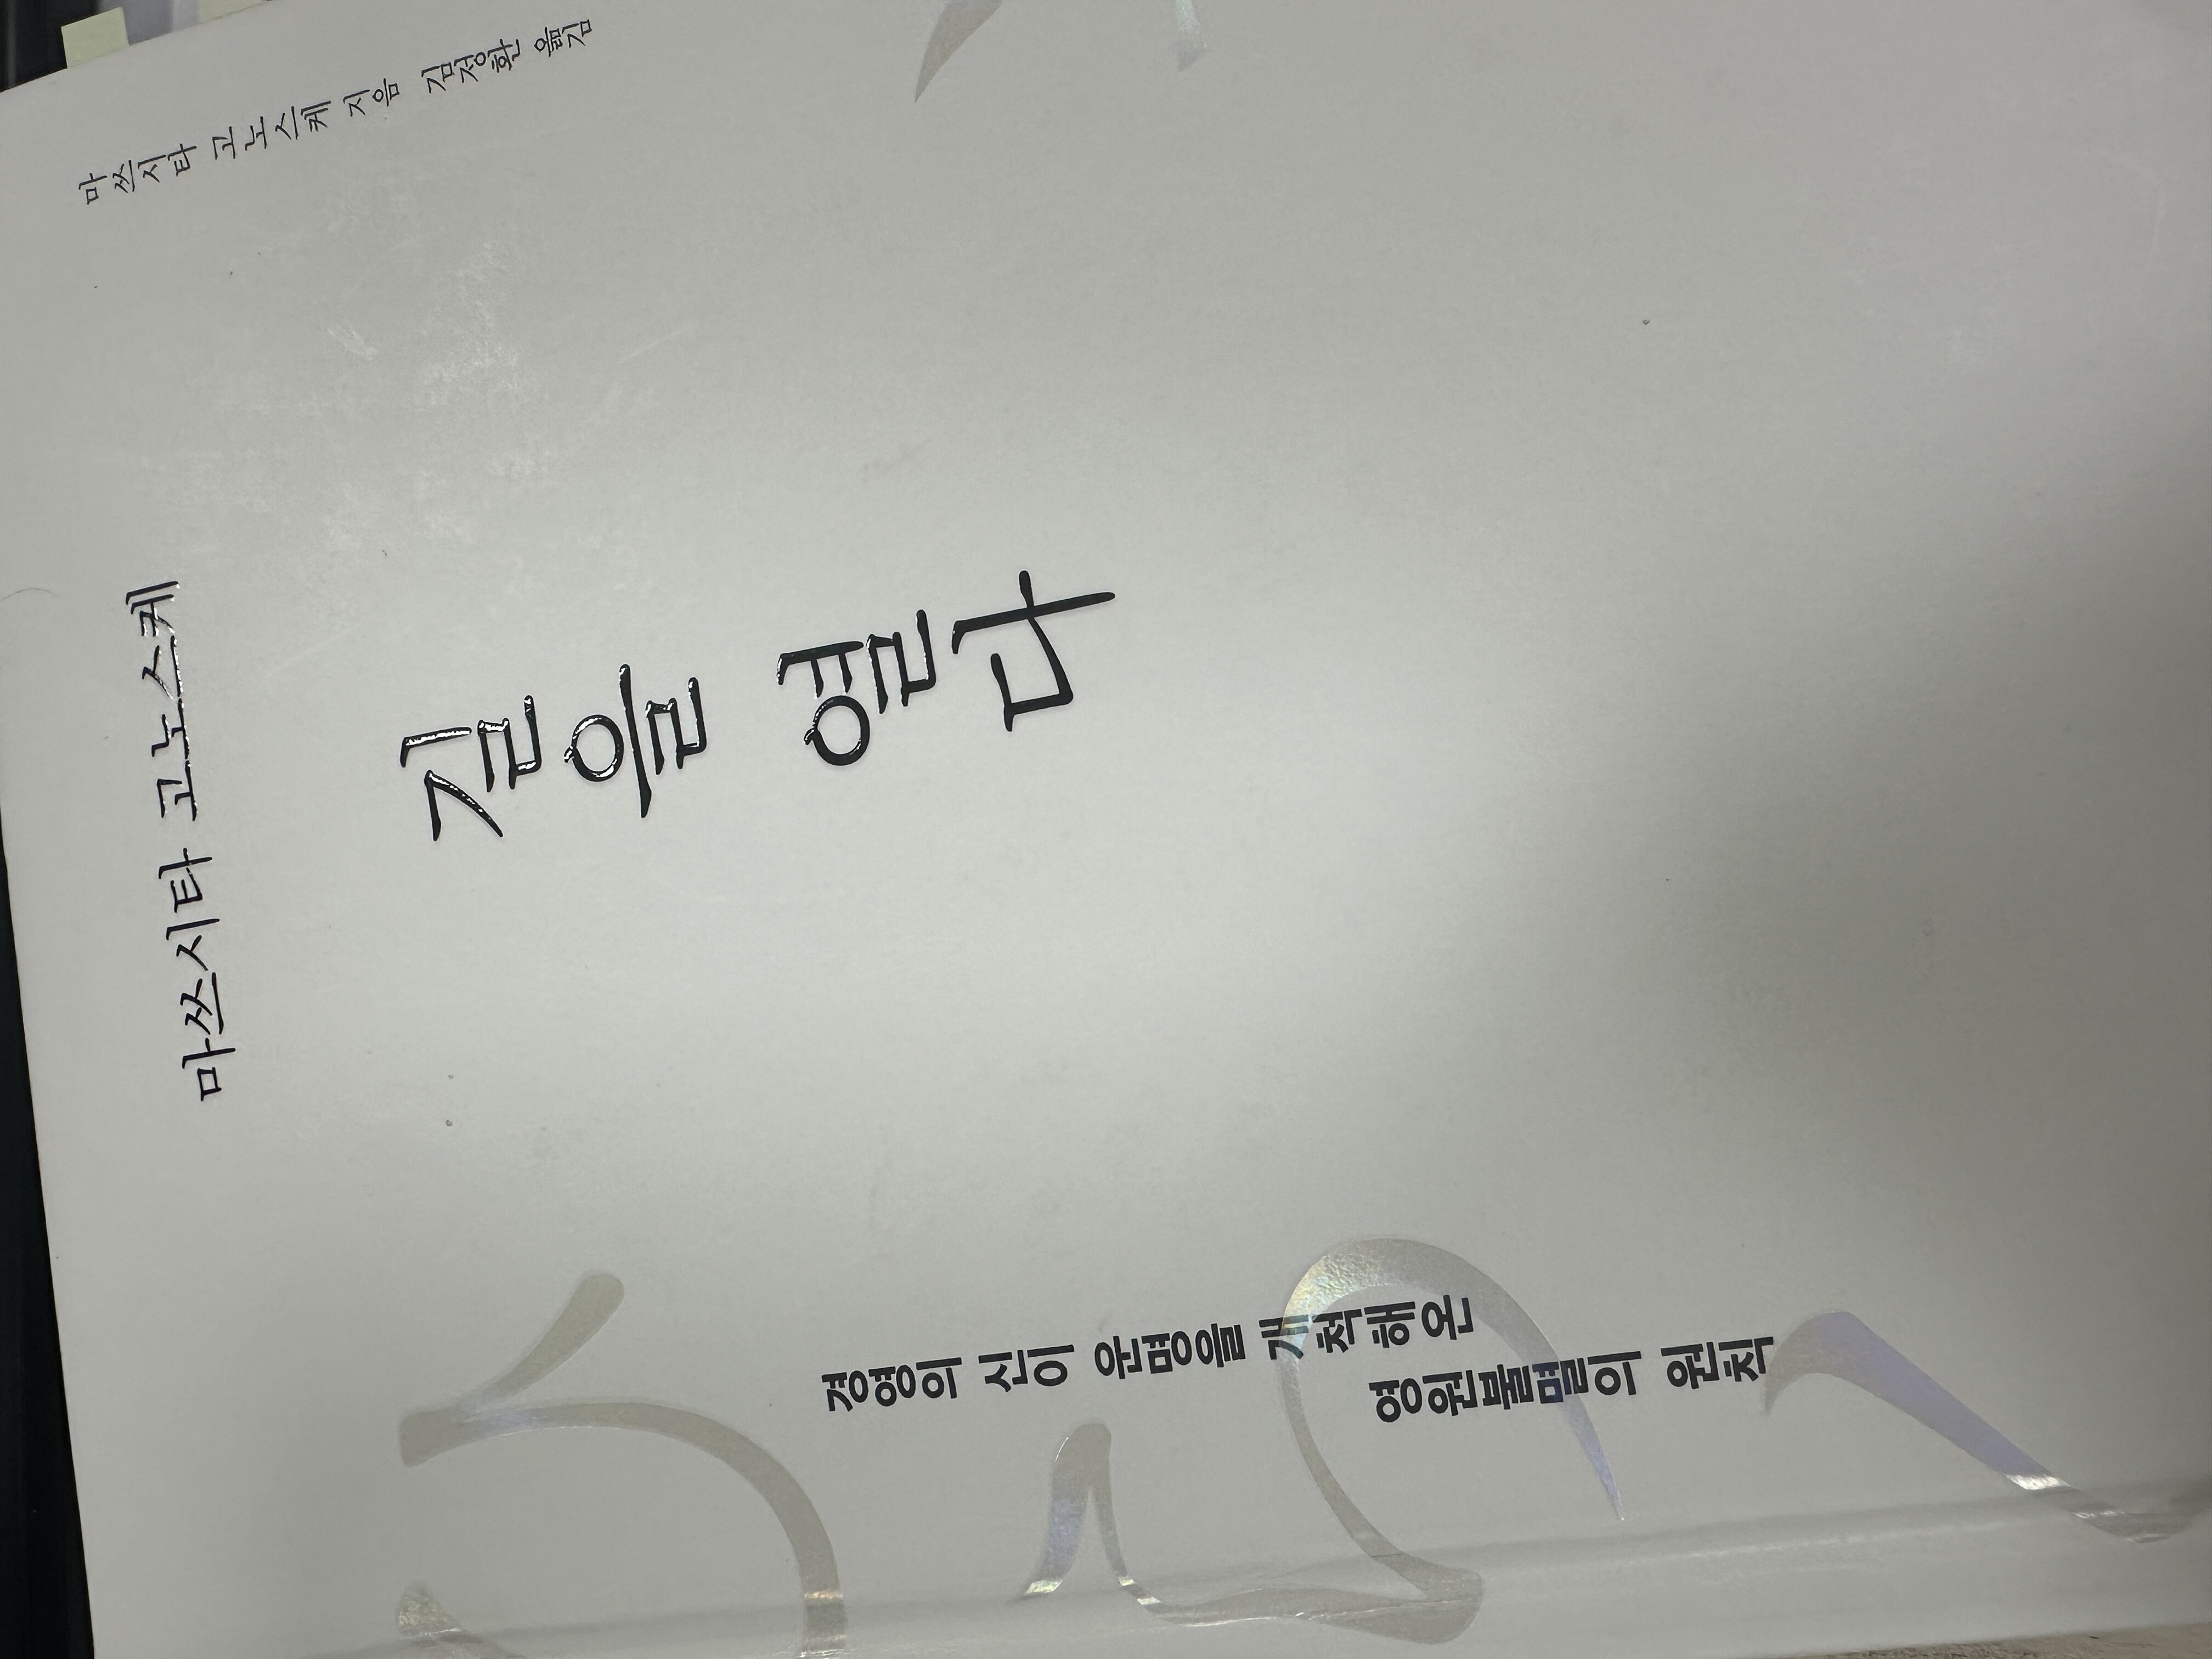 마쓰시타 고노스케 지음 김정환 옮김
마쓰시타 고노스케
길을 열다
경영의 신이 운명을 개척해온
영원불멸의 원칙